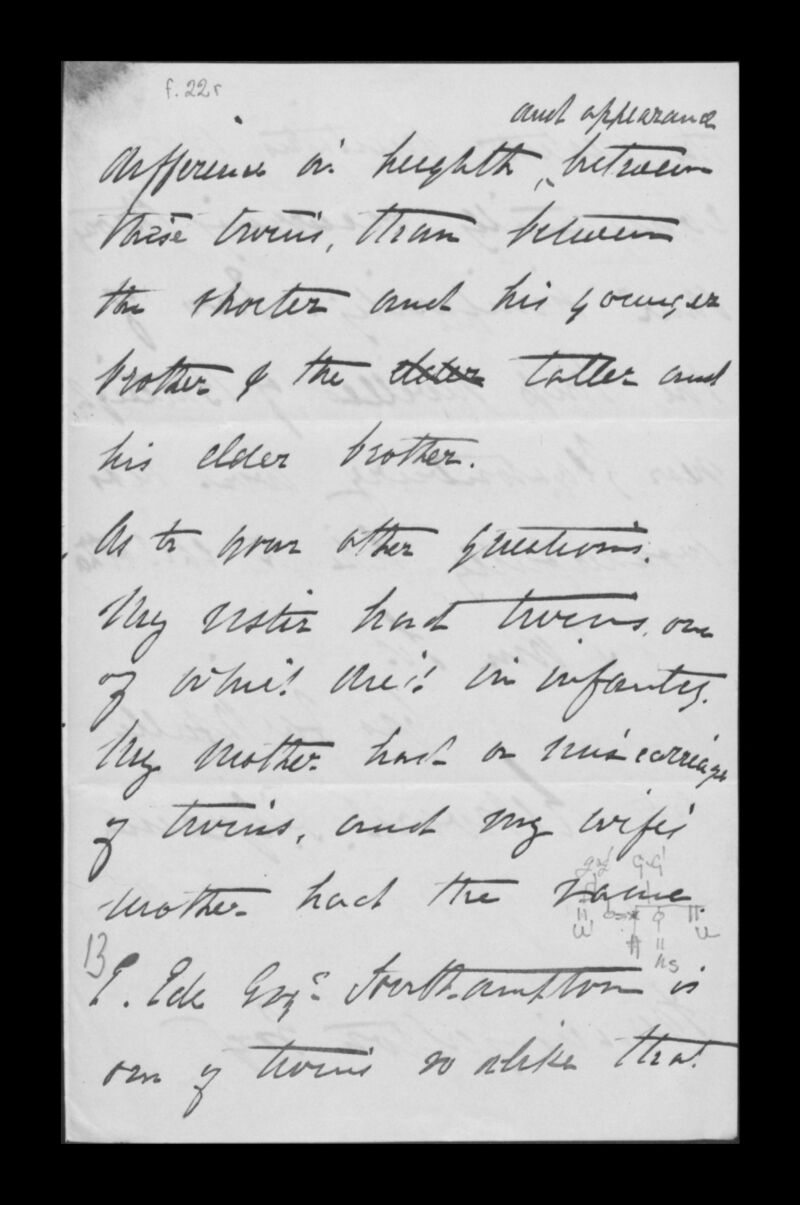 f. 22r
and appearance
difference in heighth, between
these twins, than between
the shorter and his younger
brother & the elder taller and
his elder brother.
As to your other questions.
My sister had twins, one
of which died in infancy.
My mother had a miscarriage
of twins, and my wife's
mother had the same.
13
E. Ede Esqre Southampton is
one of twins so alike that